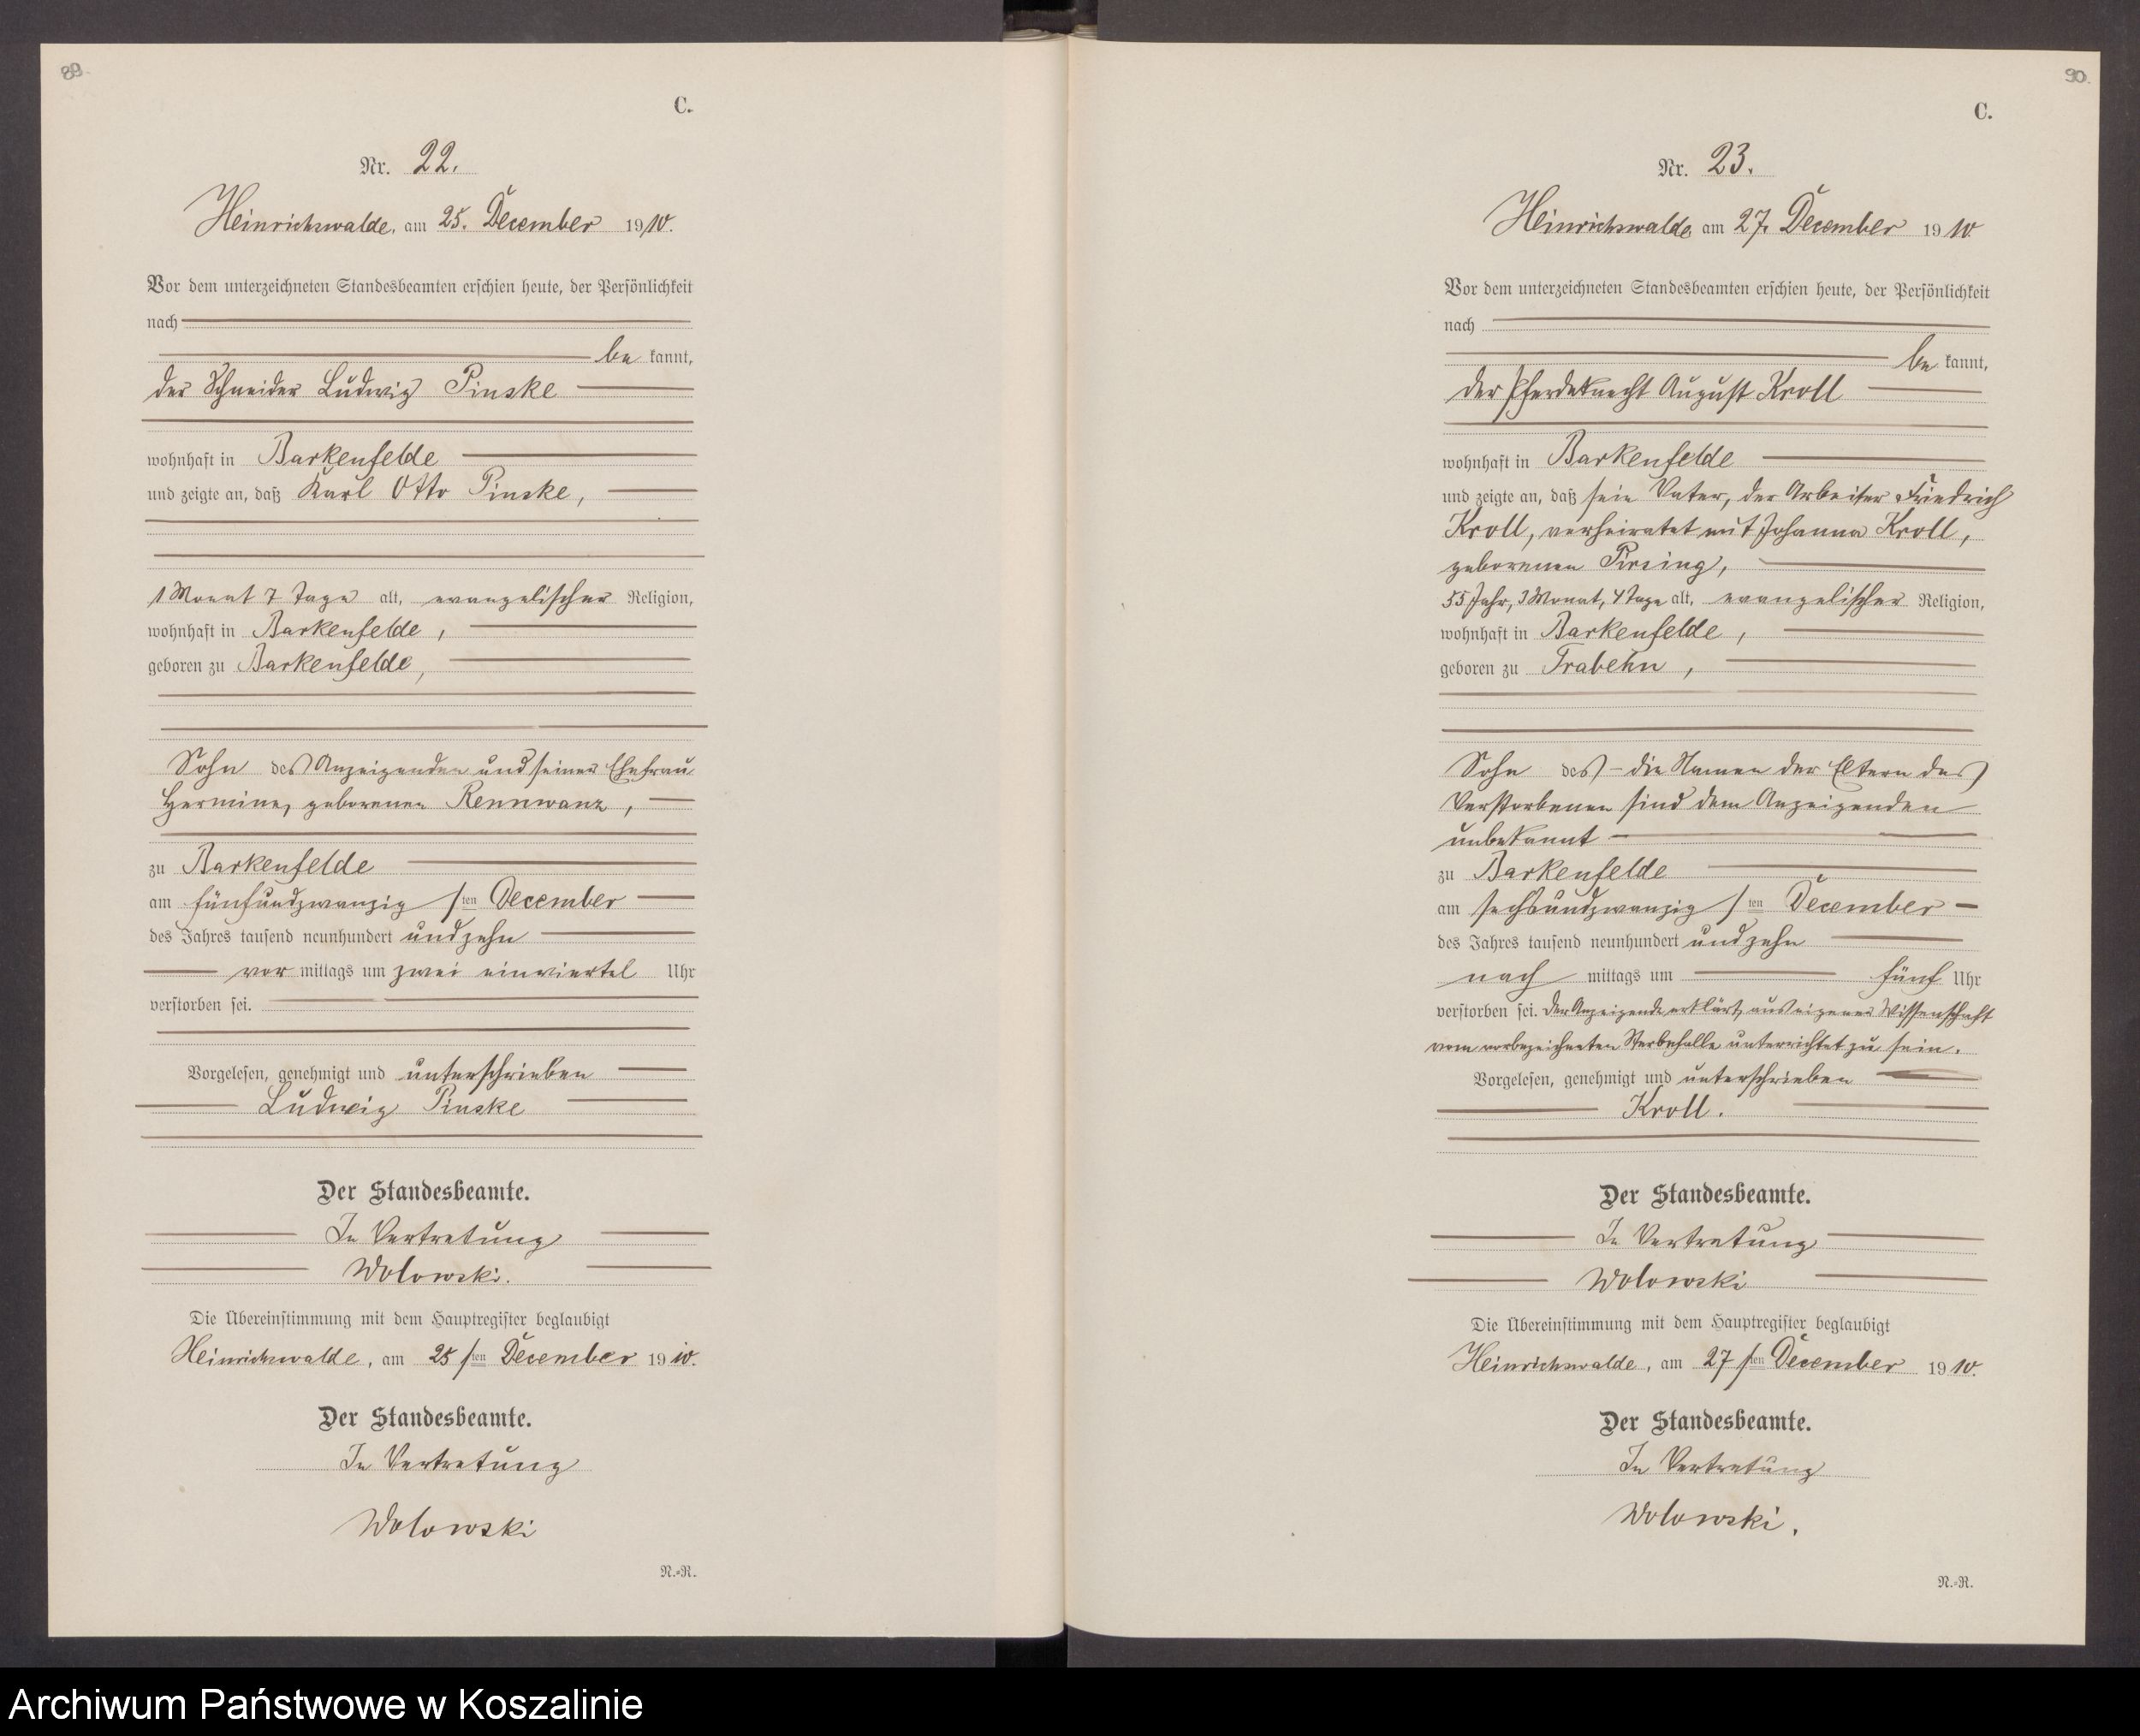 89.
C.
Nr. 22.
Heinrichswalde, am 25. December 1910.
Vor dem unterzeichneten Standesbeamten erschien heute, der Persönlichkeit
nach
be kannt,
der Schneider Ludwig Pinske
wohnhaft in Barkenfelde
und zeigte an, daß Karl Otto Pinske,
1 Monat 7 Tage alt, evangelischer Religion,
wohnhaft in Barkenfelde,
geboren zu Barkenfelde,
Sohn des Anzeigenden und seiner Ehefrau
Hermine, geborenen Rennwanz,
zu Barkenfelde
am fünfundzwanzigsten December
des Jahres tausend neunhundert und zehn
vor mittags um zwei einviertel Uhr
verstorben sei.
Vorgelesen, genehmigt und unterschrieben
Ludwig Pinske
Der Standesbeamte.
In Vertretung
Wolowski.
Die Übereinstimmung mit dem Hauptregister beglaubigt
Heinrichswalde, am 25sten December 1910.
Der Standesbeamte.
In Vertretung
Wolowski
N.=R.
90.
C.
Nr. 23.
Heinrichswalde am 27. December 1910
Vor dem unterzeichneten Standesbeamten erschien heute, der Persönlichkeit
nach
be kannt,
der Pferdeknecht August Kroll
wohnhaft in Barkenfelde
und zeigte an, daß sein Vater, der Arbeiter Friedrich
Kroll, verheiratet mit Johanna Kroll,
geborenen Pirsing,
55 Jahr, 3 Monat, 4 Tage alt, evangelischer Religion,
wohnhaft in Barkenfelde,
geboren zu Trabehn,
Sohn des - die Namen der Eltern des
Verstorbenen sind dem Anzeigenden
unbekannt -
zu Barkenfelde
am sechsundzwanzigsten December
des Jahres tausend neunhundert und zehn
nach mittags um fünf Uhr
verstorben sei. Der Anzeigende erklärt, aus eigener Wissenschaft
vom vorbezeichneten Sterbefalle unterrichtet zu sein.
Vorgelesen, genehmigt und unterschrieben
Kroll.
Der Standesbeamte.
In Vertretung
Wolowski
Die Übereinstimmung mit dem Hauptregister beglaubigt
Heinrichswalde, am 27sten December 1910.
Der Standesbeamte.
In Vertretung
Wolowski.
N.=R.
Archiwum Państwowe w Koszalinie